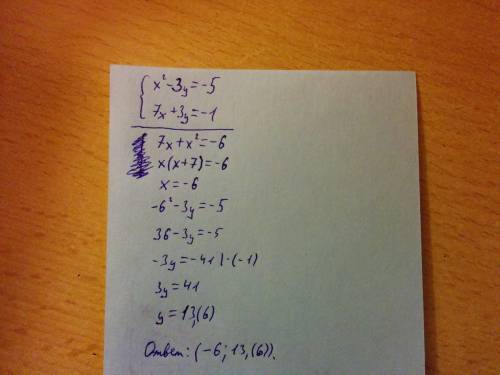 { x² - 3y = -5
7x + 3y = -1
7x + x² = -6
x(x+7) = -6
x = -6
-6² - 3y = -5
36 - 3y = -5
-3y = -41 | ·(-1)
3y = 41
y = 13,(6)
Ответ: (-6; 13,(6)).